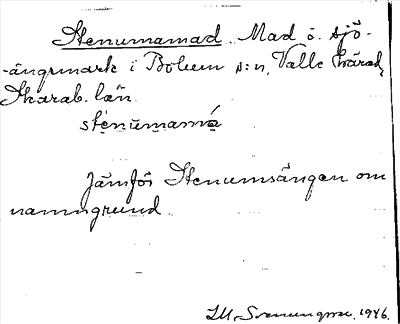 Stenumamad. Mad ö. sjö-
-ängsmark i Bolum s:n, Valle härad,
Skarab. län
stenumamá
Jämför Stenumsängen om
namngrund
Svenungsson. 1946.